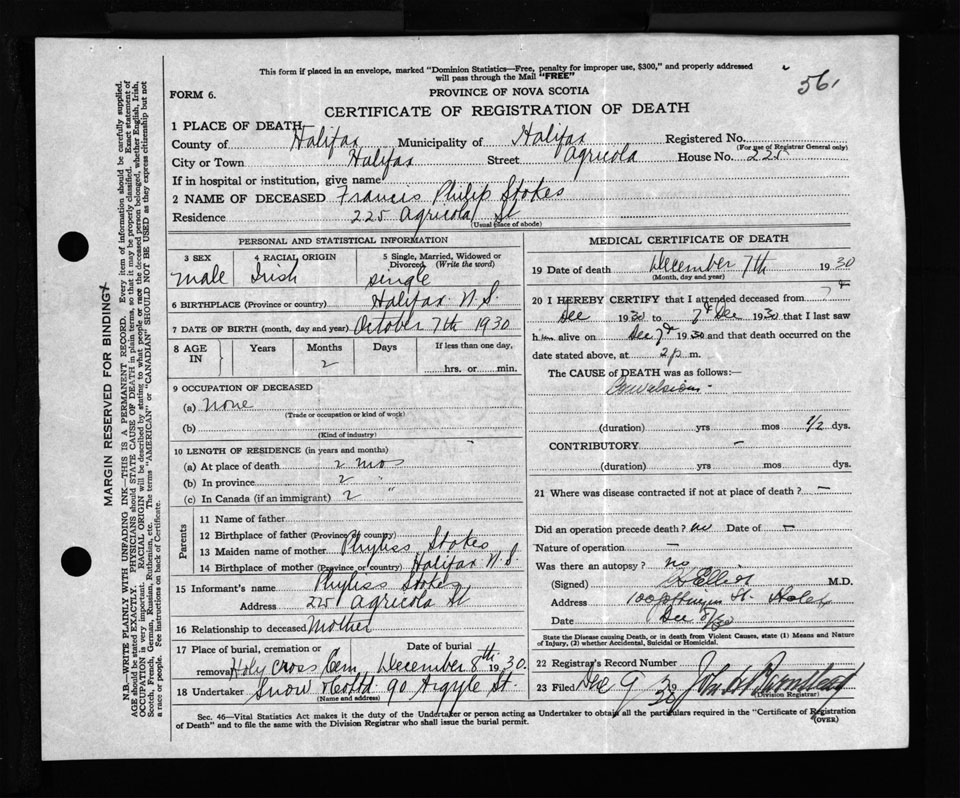 This form if placed in an envelope, marked "Dominion Statistics—Free, penalty for improper use, $300," and properly addressed
will pass through the Mail "FREE"
56
FORM 6.
PROVINCE OF NOVA SCOTIA
CERTIFICATE OF REGISTRATION OF DEATH
1 PLACE OF DEATH
County of Halifax Municipality of Halifax Registered No.
(For use of Registrar General only)
City or Town Halifax Street Agricola House No. 225
If in hospital or institution, give name
2 NAME OF DECEASED Francis Philip Stokes
Residence 225 Agricola St
(Usual place of abode)
PERSONAL AND STATISTICAL INFORMATION
3 SEX 4 RACIAL ORIGIN 5 Single, Married, Widowed or
Divorced (Write the word)
male Irish single
6 BIRTHPLACE (Province or country) Halifax N.S.
7 DATE OF BIRTH (month, day and year) October 7th 1930
8 AGE IN Years Months Days If less than one day,
2 hrs. or min.
9 OCCUPATION OF DECEASED
(a) none
(Trade or occupation or kind of work)
(b)
(Kind of industry)
10 LENGTH OF RESIDENCE (in years and months)
(a) At place of death 2 mos
(b) In province 2 "
(c) In Canada (if an immigrant) 2 "
Parents
11 Name of father
12 Birthplace of father (Province or country)
13 Maiden name of mother Phyliss Stokes
14 Birthplace of mother (Province or country) Halifax N.S
15 Informant's name Phyliss Stokes
Address 225 Agricola St
16 Relationship to deceased Mother
17 Place of burial, cremation or Date of burial
removal Holy Cross Cem, December 8th 1930.
18 Undertaker Snow & Co Ltd 90 Argyle St.
(Name and address)
MEDICAL CERTIFICATE OF DEATH
19 Date of death December 7th 1930
(Month, day and year)
20 I HEREBY CERTIFY that I attended deceased from 7th
Dec 1930 to 7th Dec 1930 that I last saw
him alive on Dec 7th 1930 and that death occurred on the
date stated above, at 2 p. m.
The CAUSE of DEATH was as follows:—
Convulsions
(duration) yrs mos 1/2 dys.
CONTRIBUTORY —
(duration) yrs mos dys.
21 Where was disease contracted if not at place of death? —
Did an operation precede death? no Date of —
Nature of operation —
Was there an autopsy? no
(Signed) M.D.
Address St. Halifax
Date Dec 8/30
State the Disease causing Death, or in death from Violent Causes, state (1) Means and Nature
of Injury, (2) whether Accidental, Suicidal or Homicidal.
22 Registrar's Record Number
23 Filed Dec 9 1930 John
Division Registrar)
Sec. 46—Vital Statistics Act makes it the duty of the Undertaker or person acting as Undertaker to obtain all the particulars required in the "Certificate of Registration
of Death" and to file the same with the Division Registrar who shall issue the burial permit.
(OVER)
MARGIN RESERVED FOR BINDING
N.B.—WRITE PLAINLY WITH UNFADING INK—THIS IS A PERMANENT RECORD. Every item of information should be carefully supplied.
AGE should be stated EXACTLY. PHYSICIANS should STATE CAUSE OF DEATH in plain terms, so that it may be properly classified. Exact statement of
OCCUPATION is very important. RACIAL ORIGIN will be described by stating to what people or race the deceased person belonged, whether English, Irish,
Scotch, French, German, Russian, Ruthenian, etc. The terms "AMERICAN" or "CANADIAN" SHOULD NOT BE USED as they express citizenship but not
a race or people. Fee instructions on back of Certificate.